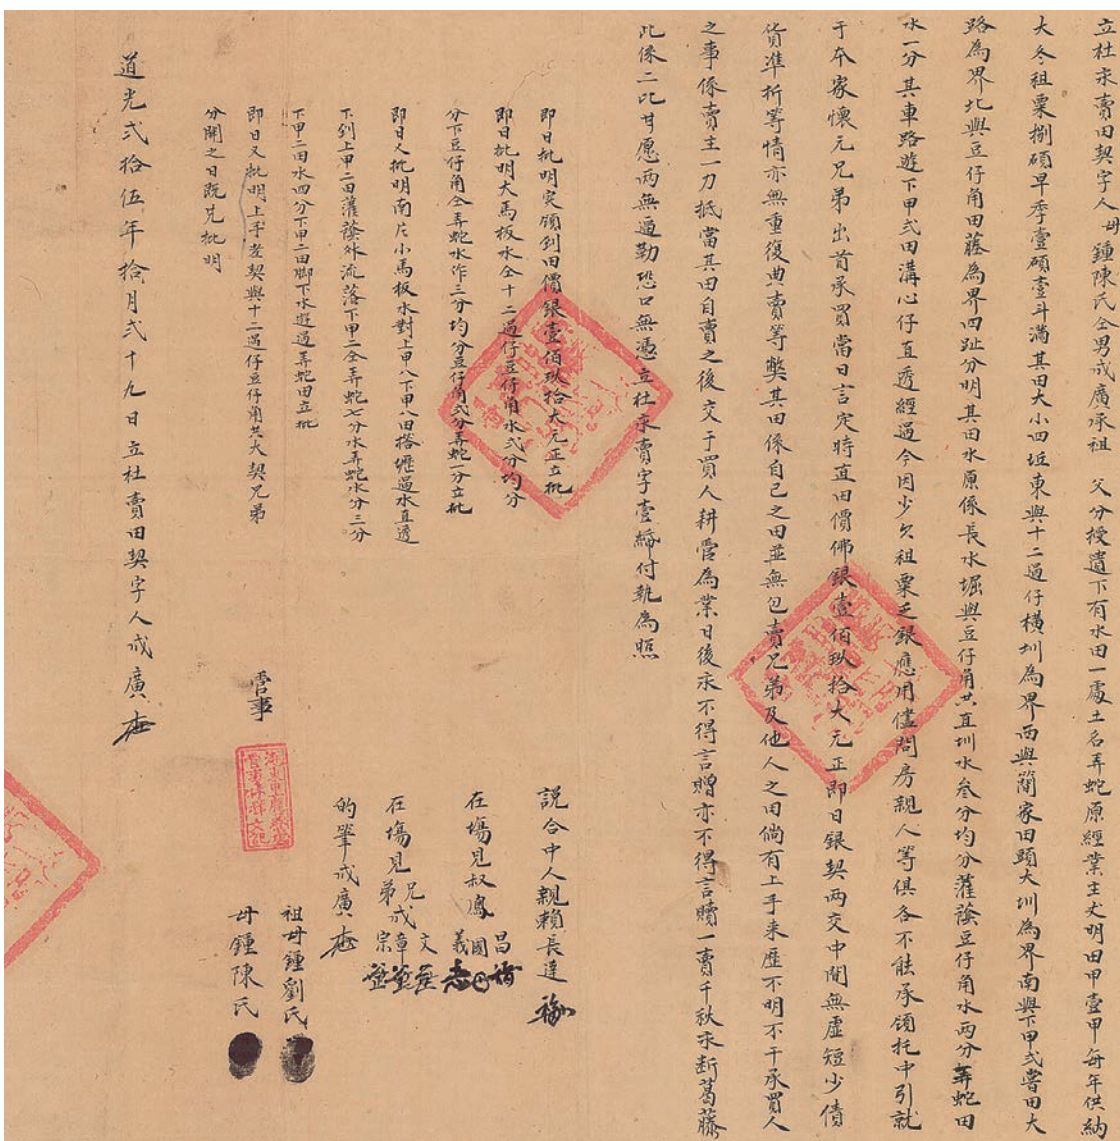 立杜宗賣田契字人母鍾陳氏仝男戒廣承祖父分授遺下有水田一處土名弄蛇原經業主丈明田甲壹甲每年供納
大冬祖粟捌碩早季壹碩壹斗滿其田大小四坵東與十二過仔橫圳為界西與簡家田頭大圳為界南與下甲弍嘗田大
路為界北與豆仔角田藤為界四趾分明其田水原係長水堀與豆仔角共直圳水叁分均分灌蔭豆仔角水兩分弄蛇田
水一分其車路遊下甲弍田溝心仔直透經過今因少欠祖粟乏銀應用儘問房親人等俱各不能承領托中引就
于本家懷元兄弟出首承買當日言定時直田價佛銀壹佰玖拾大元正即日銀契兩交中間無虛短少債
貨準折等情亦無重復典賣等弊其田係自己之田並無包賣兄弟及他人之田倘有上手来歷不明不干承買人
之事係賣主一力抵當其田自賣之後交于買人耕管為業日後永不得言贈亦不得言贖一賣千秋永断葛藤
此係二比甘愿兩無逼勒恐口無憑立杜永賣字壹紙付執為照
即日批明实領到田價銀壹佰玖拾大元正立批
即日批明大馬板水仝十二過仔豆仔角水弍分均分
分下豆仔角仝弄蛇水作三分均分豆仔角弍分弄蛇一分立批
即日又批明南片小馬板水對上甲八下甲八田搭壢過水直透
下到上甲二田灌蔭外流落下甲二仝弄蛇七分水弄蛇水分三分
下甲二田水四分下甲二田腳下水遊過弄蛇田立批
即日又批明上手老契與十二過仔豆仔角共大契兄弟
分開之日既兄批明
說合中人親賴長達
在場見叔鳳昌國義
在場見兄弟戒文章宗
的筆戒廣
祖母鍾劉氏
母鍾陳氏
管事
道光弍拾伍年拾月弍十九日立杜賣田契字人戒廣